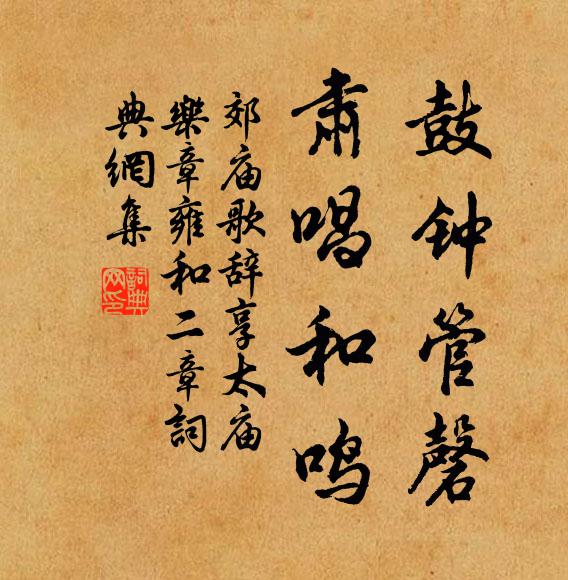 鼓钟管磬
肃唱和鸣
郊庙歌辞享太庙
樂章雍和二章詞
典網集
詞典网印